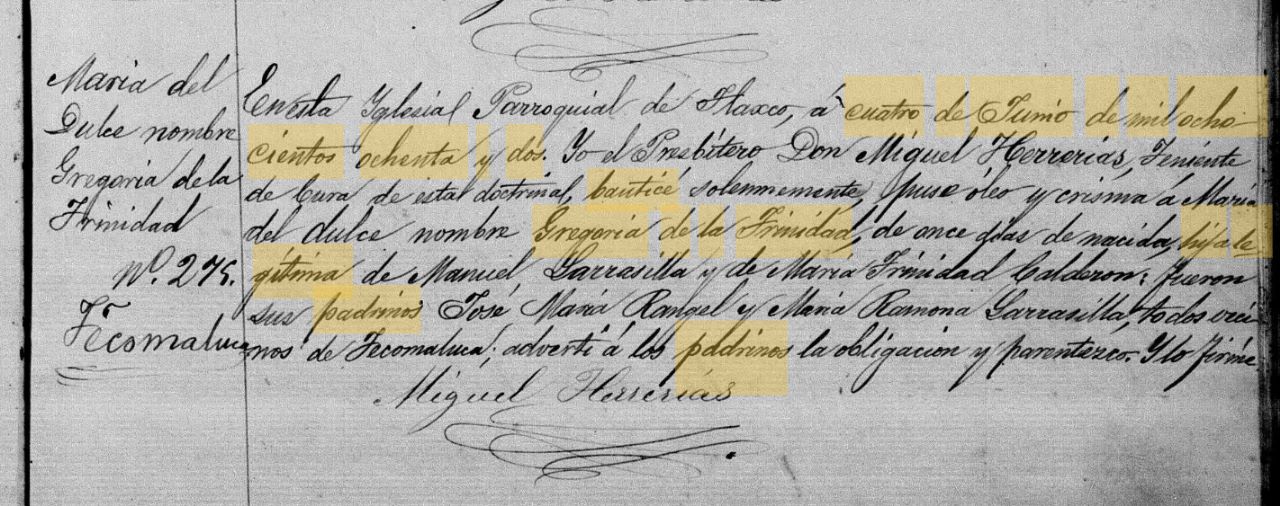 Maria del
Dulce nombre
Gregoria de la
Trinidad
Nº. 275.
Tecomaluca
En esta Yglesial Parroquial de Tlaxco, á cuatro de Junio de mil ocho
cientos ochenta y dos. Yo el Presbítero Don Miguel Herrerias, Teniente
de Cura de estal doctrinal, bauticé solemnemente, puse óleo y crisma á Maria
del dulce nombre Gregoria de la Trinidad, de once dias de nacida, hija le
gitima de Manuel Garrasilla y de Maria Trinidad Calderon: fueron
sus padrinos José Maria Rangel y Maria Ramona Garrasilla, todos veci
nos de Tecomaluca; adverti á los padrinos la obligacion y parentezco. Y lo firmé
Miguel Herrerias